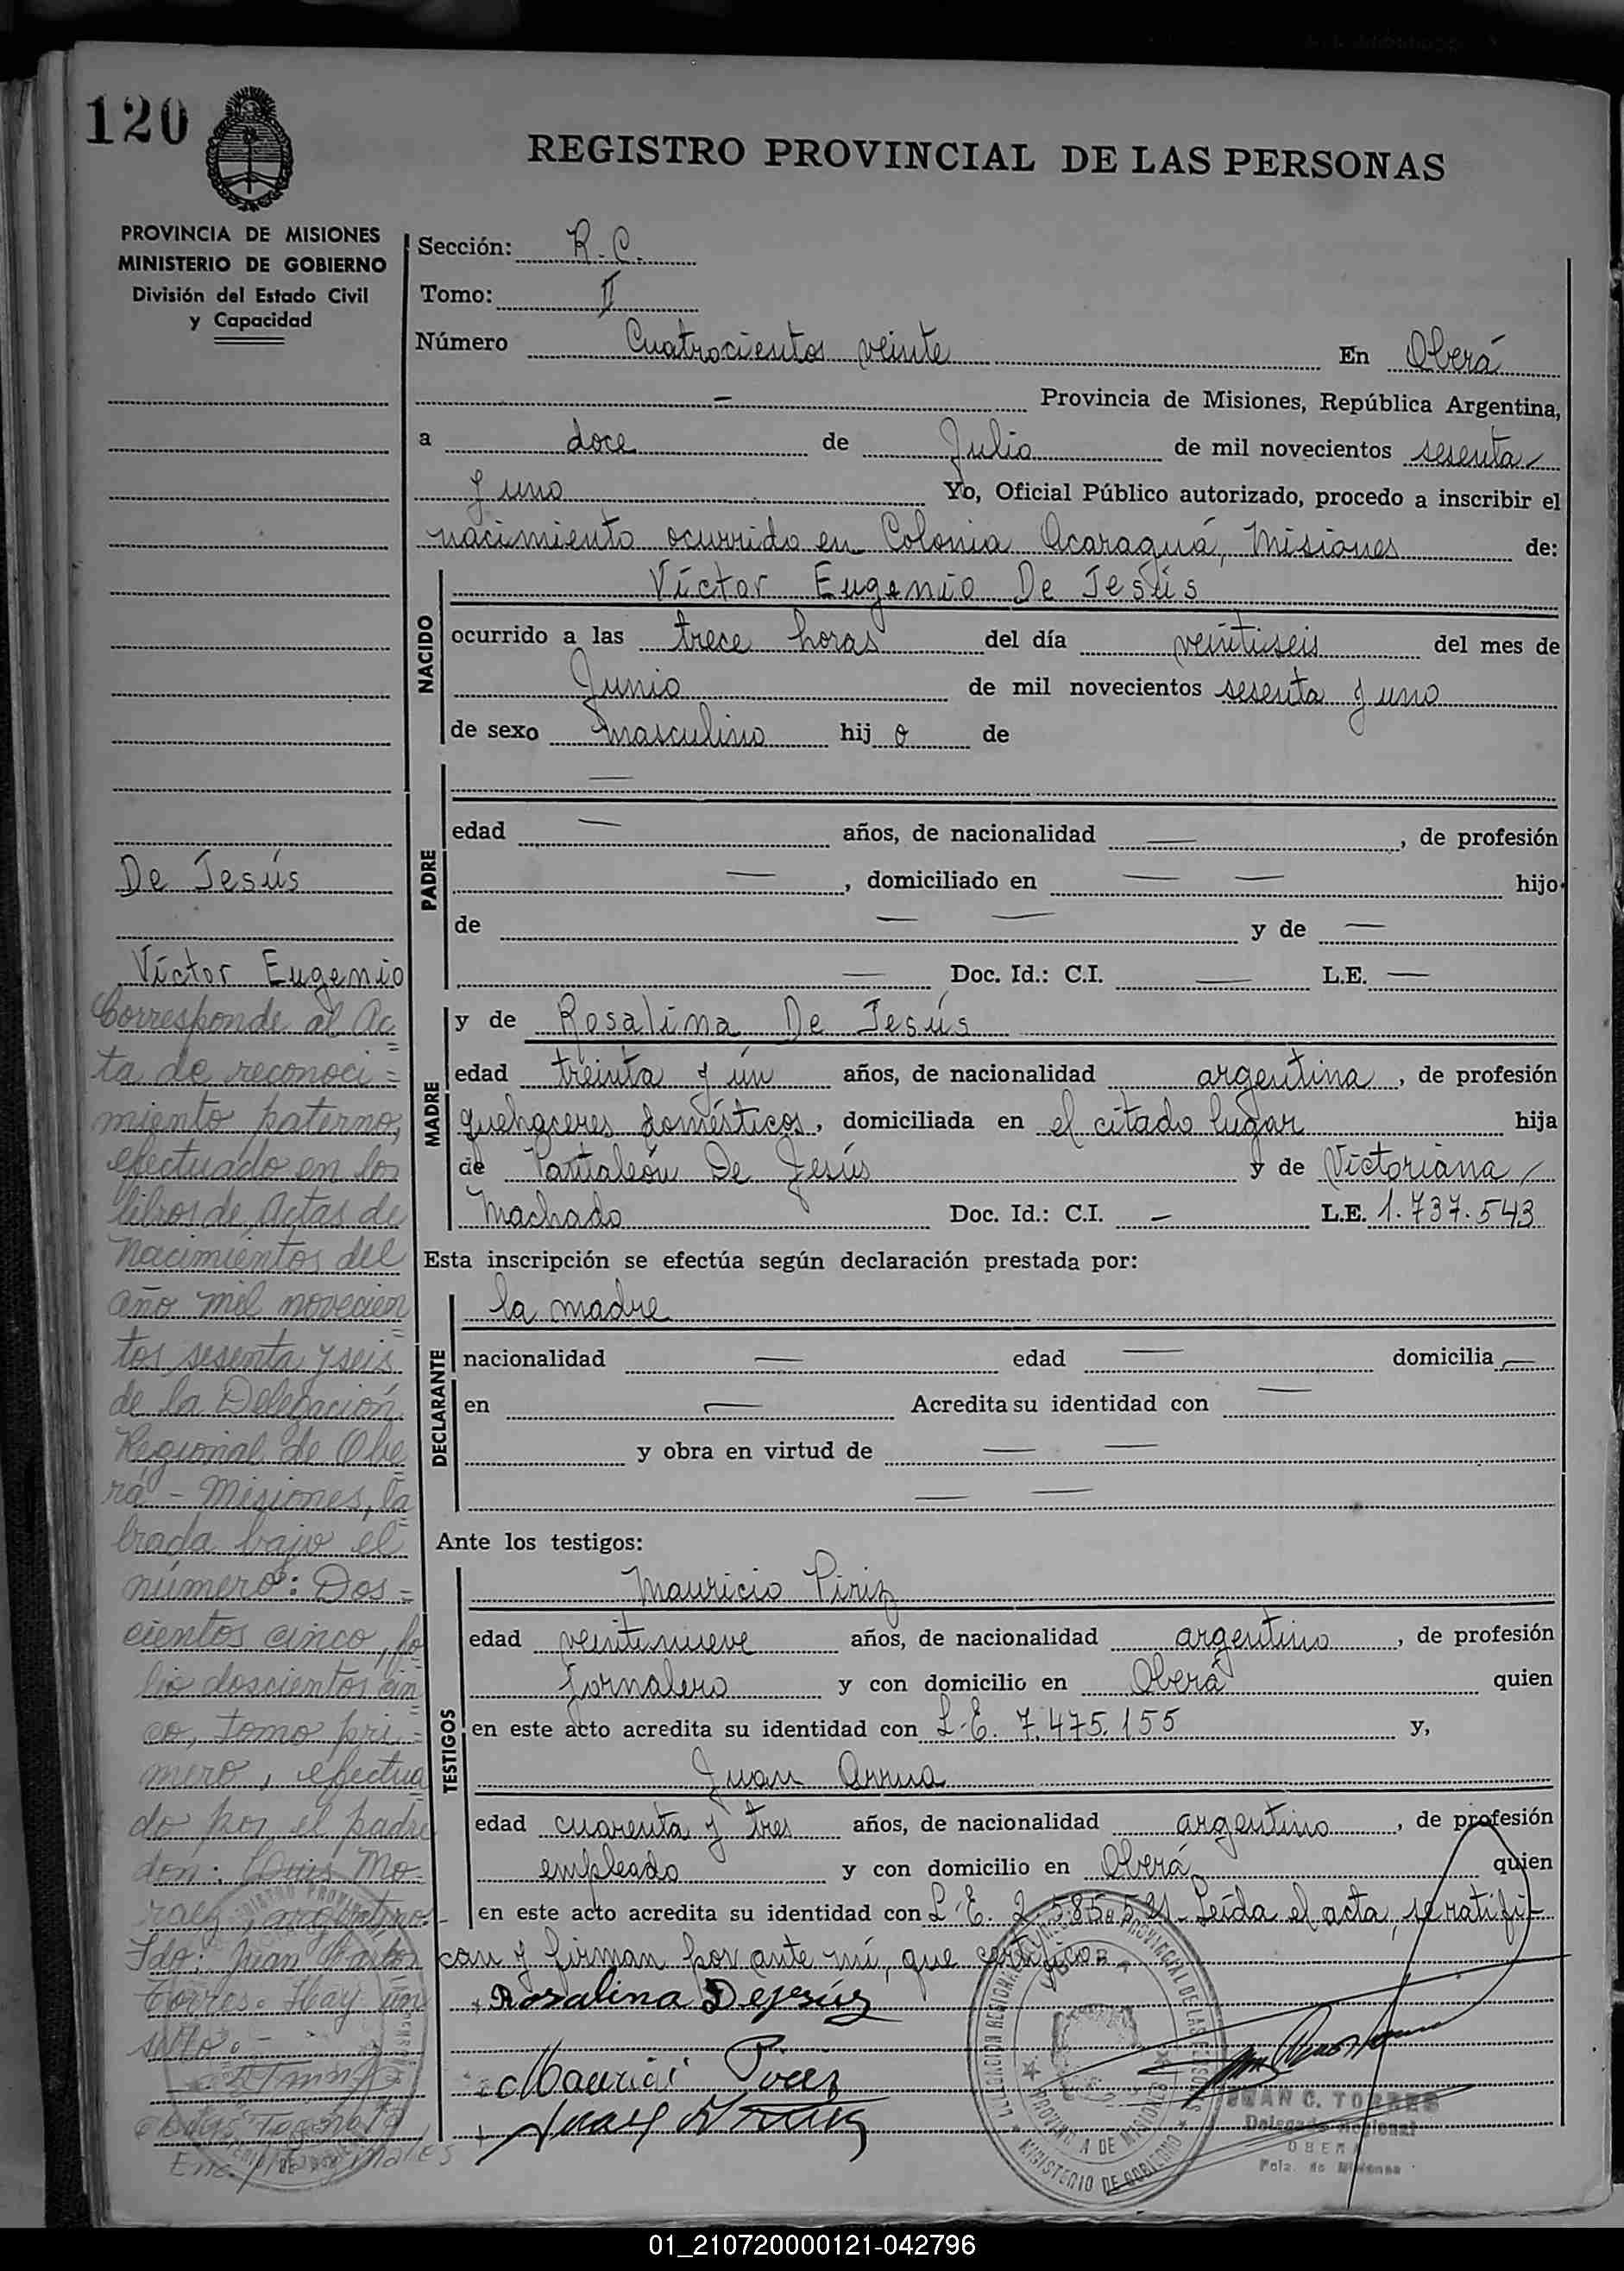 120
REGISTRO PROVINCIAL DE LAS PERSONAS
PROVINCIA DE MISIONES
MINISTERIO DE GOBIERNO
División del Estado Civil
y Capacidad
De Jesús
Víctor Eugenio
Corresponde al Ac
ta de reconoci =
miento paterno,
efectuado en los
libros de Actas de
Nacimientos del
año mil novecien
tos sesenta y seis
de la Delegación
Regional de Obe
rá - Misiones, la
brada bajo el
número: Dos =
cientos cinco, fo
lio doscientos cin
co, tomo pri =
mero, efectua
do por el padre
don: Luis Mo-
raez, argentino.-
Fdo: Juan Carlos
Torres. Hay un
sello.-
Sección: R. C.
Tomo: II
Número Cuatrocientos veinte En Oberá
— Provincia de Misiones, República Argentina,
a doce de Julio de mil novecientos sesenta
y uno Yo, Oficial Público autorizado, procedo a inscribir el
nacimiento ocurrido en Colonia Acaraguá, Misiones de:
NACIDO
Víctor Eugenio De Jesús
ocurrido a las trece horas del día veintiseis del mes de
Junio de mil novecientos sesenta y uno
de sexo masculino hij o de
PADRE
—
edad — años, de nacionalidad —, de profesión
—, domiciliado en — — hijo
de — — y de —
— Doc. Id.: C.I. — L.E. —
MADRE
y de Rosalina De Jesús
edad treinta y un años, de nacionalidad argentina, de profesión
quehaceres domésticos, domiciliada en el citado lugar hija
de Pantaleón De Jesús y de Victoriana
Machado Doc. Id.: C.I. — L.E. 1.737.543
Esta inscripción se efectúa según declaración prestada por:
DECLARANTE
la madre
nacionalidad — edad — domicilia —
en — Acredita su identidad con —
y obra en virtud de — —
— —
Ante los testigos:
TESTIGOS
Mauricio Piriz
edad veintinueve años, de nacionalidad argentino, de profesión
jornalero y con domicilio en Oberá quien
en este acto acredita su identidad con L.E. 7.475.155 y,
Juan Arrua
edad cuarenta y tres años, de nacionalidad argentino, de profesión
empleado y con domicilio en Oberá quien
en este acto acredita su identidad con L.E. Leída el acta, se ratifi-
can y firman por ante mí, que certifico.
Rosalina Dejesús
JUAN C. TORRES
Delegado Regional
OBERA
Pcia. de Misiones
DELEGACION REGIONAL OBERA
REGISTRO PROVINCIAL DE LAS PERSONAS
PROVINCIA DE MISIONES
MINISTERIO DE GOBIERNO
01_210720000121-042796